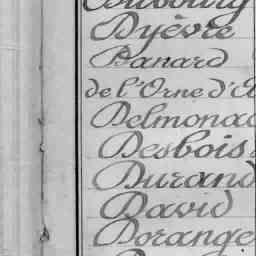 Dubourg
Dyèvre
Danard
de l'Orne d'A
Delmonac
Desbois
Durand
David
Dorange